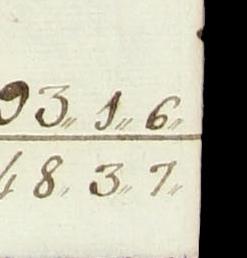 93〃 1〃 6〃
48〃 3〃 7〃